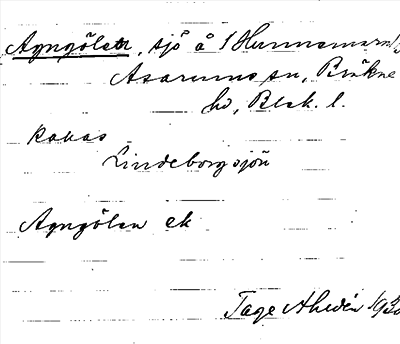 Agngölen, sjö å 1 Hunnemara
Asarums sn, Bräkne
hd, Blek. l.
kallas
Lindeborgssjön
Agngölen ek
Tage Ahldén 1930